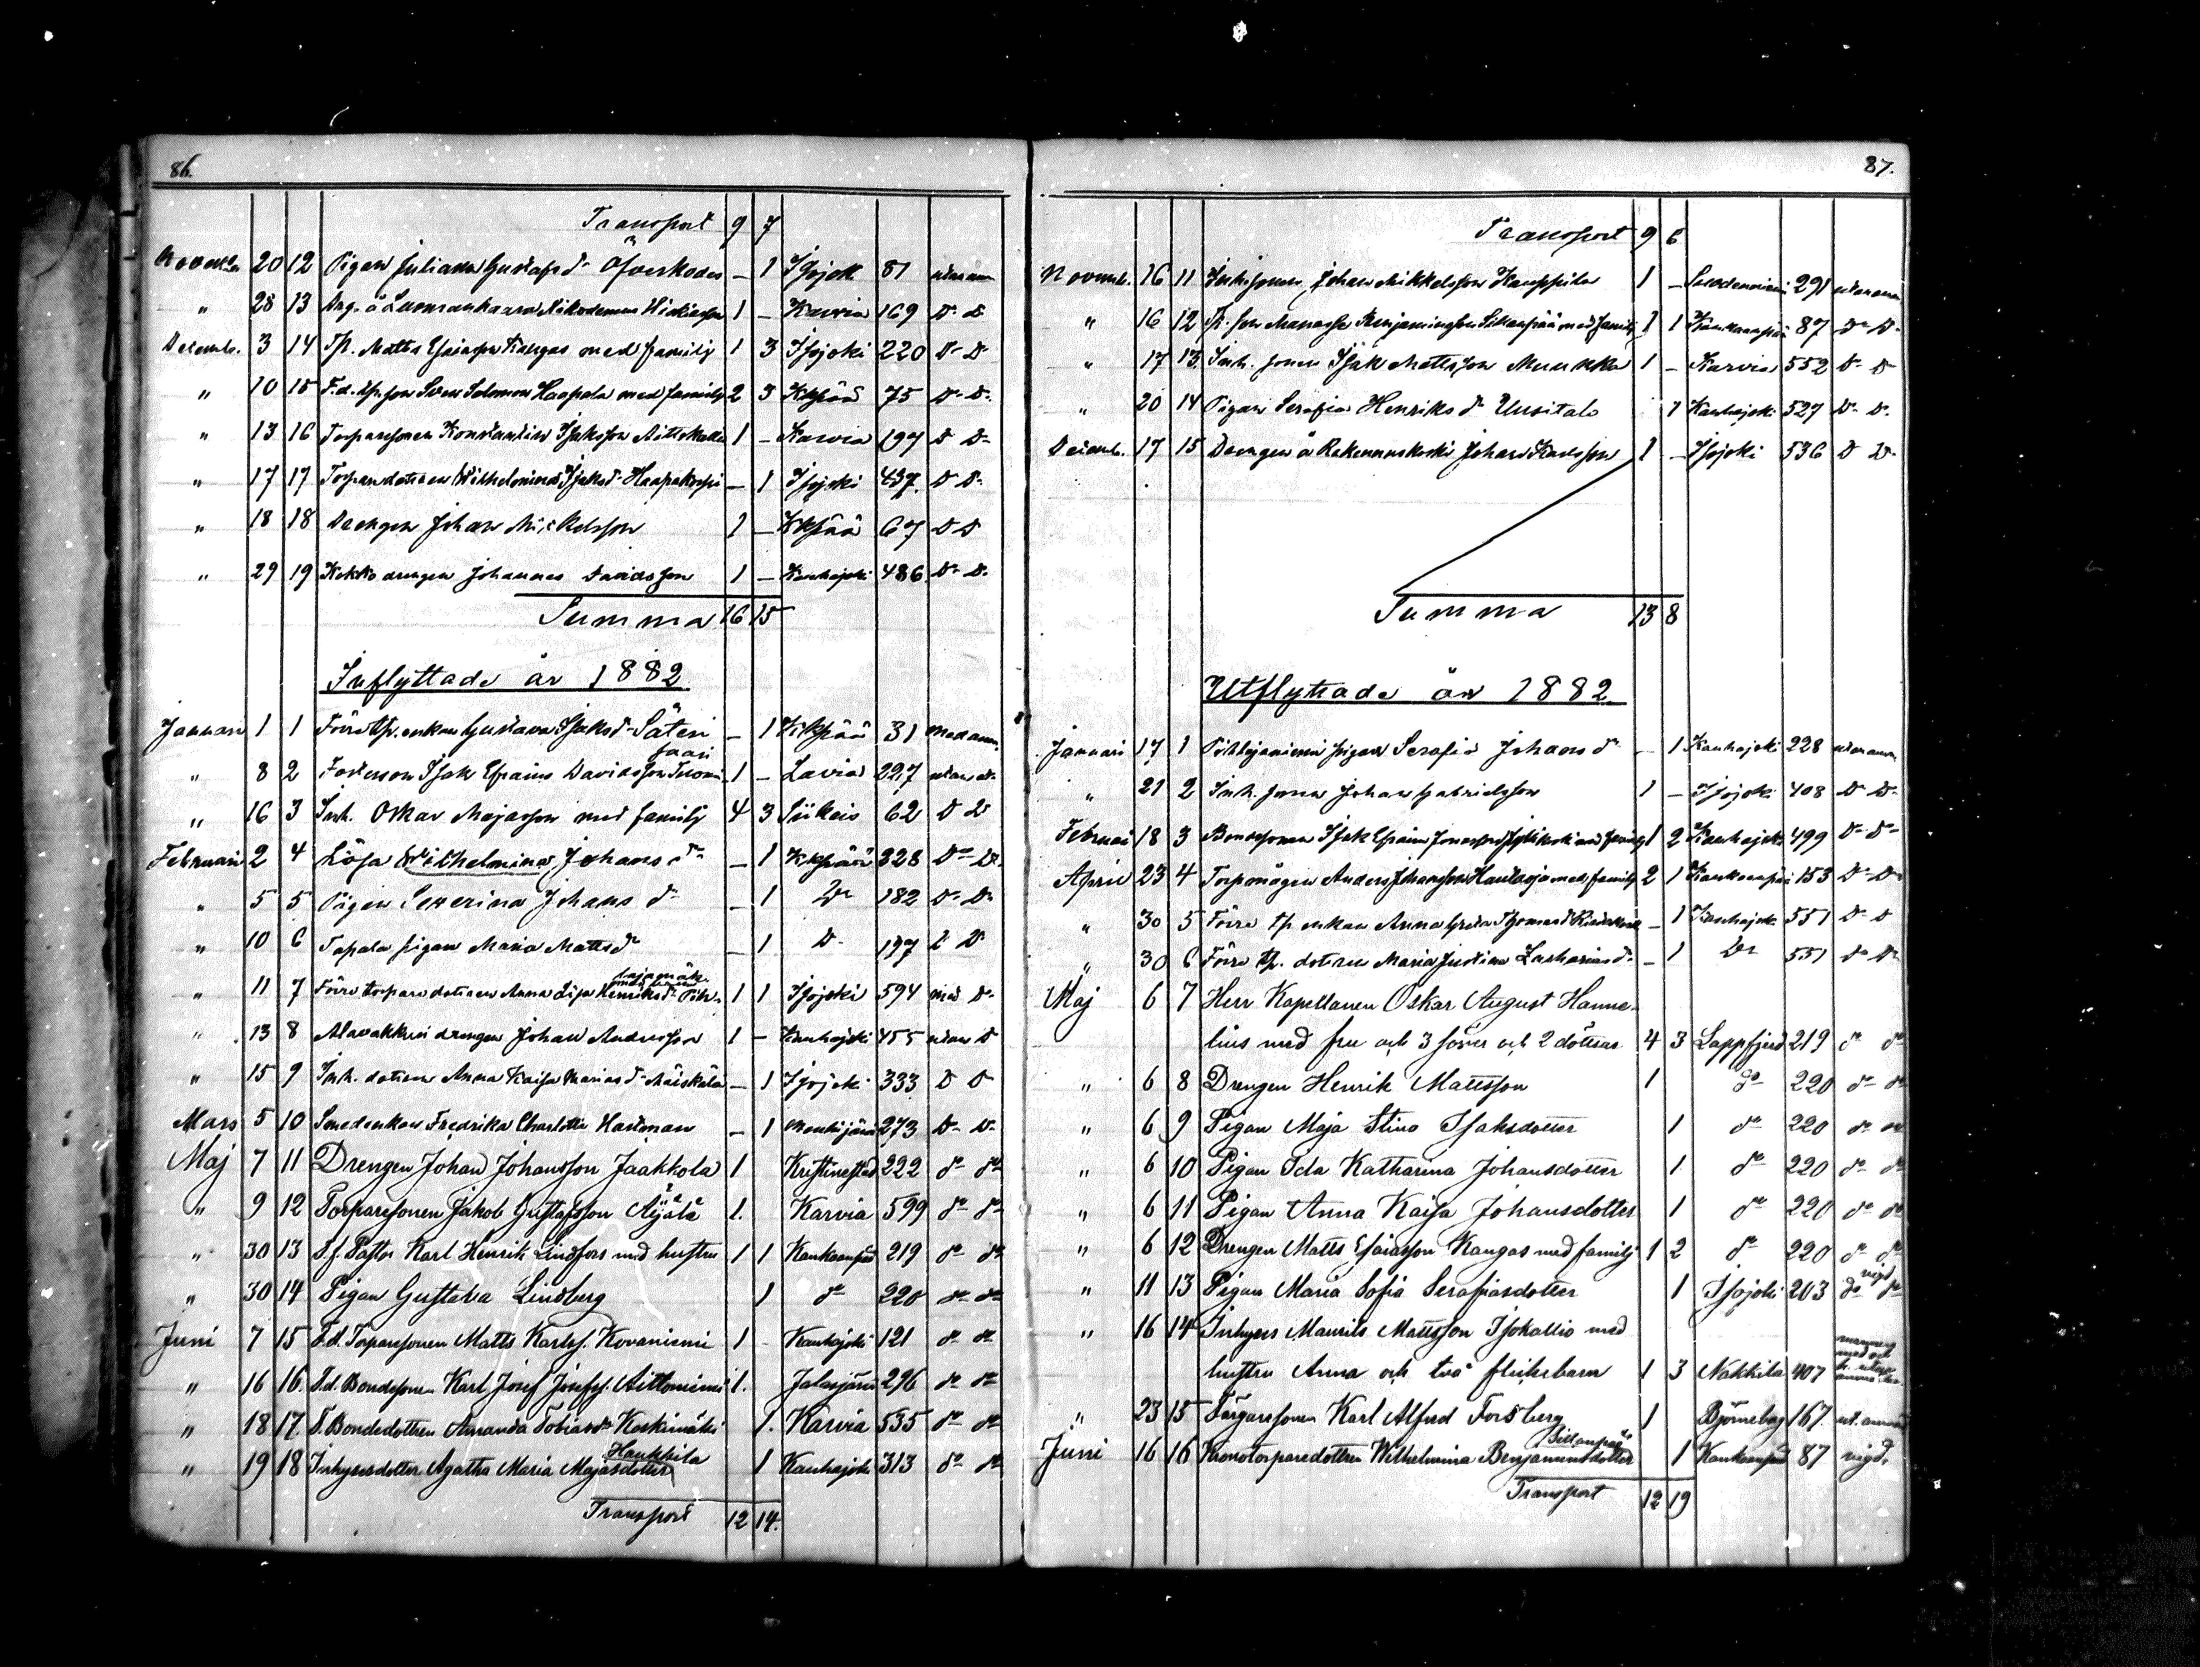 86.
Transport 9 7
Novemb. 20 12 Pigan Juliana Gustafsd. Öfverkodes — 1 Isojok 81 utan anm
" 28 13 Drg. å Luomankaara Nikodemus 1 — Karvia 169 D. D
Decemb. 3 14 Tp. Matts Esaiass Kangas med familj 1 3 Isojoki 220 D- D
" 10 15 F.d. tp. son Sven Salomon Haapala med familj 2 3 Kkpää 75 D- D-
" 13 16 Torparesonen Konstantin Isaksson 1 — Karvia 197 D D-
" 17 17 Torparedottren Wilhelmina Isaksd. Haapakoski — 1 Isojoki 437. D D-
" 18 18 Drengen Johan Mickelsson 1 — Kkpää 67 D D
" 29 19 Kokko drengen Johannes Davidsson 1 — Kauhajoki 486 D- D-
Summa 16 15
Inflyttade år 1882
Januari 1 1 Förre tp. enkan Gustava Isaksd. Säteri — 1 Kkpää 31 med anm.
" 8 2 Fosterson Isak Efraim Davidsson Tuomisaari 1 — Lavia 227 utan d-
" 16 3 Inh. Oskar Majasson med familj 4 3 Siikais 62 D D
Februari 2 4 Lösa Wilhelmina Johansd- — 1 Kkpää 328 D- D-
" 5 5 Pigan Severina Johans d- — 1 Dn 182 D- D-
" 10 6 Tapala pigan Maria Mattsd- — 1 D- 197 D D
" 11 7 Förre torparedottren Anna Lisa Henriksd- 1 1 Isojoki 594 med D-
" 13 8 Alavakkuri drengen Johan Andersson 1 — Kauhajoki 455 utan D
" 15 9 Inh. dottren Anna Kaisa Mariasd- — 1 Isojoki 333 D D
Mars 5 10 Smedenkan Fredrika Charlotta Hartman — 1 273 D- D-
Maj 7 11 Drengen Johan Johansson Jaakkola 1 Kristinestad 222 d- d-
" 9 12 Torparesonen Jakob Gustafsson Äijälä 1. Karvia 599 d- d-
" 30 13 S.f. Pastor Karl Henrik Lindfors med hustru 1 1 Kankaanpää 219 d- d-
" 30 14 Pigan Gustava Lindberg 1 d- 220 d- d-
Juni 7 15 F.d. Torparesonen Matts Karlss. Kovaniemi 1 - Kauhajoki 121 d- d-
" 16 16. F.d. Bondesonen Karl Josef Josefss. Aittoniemi 1. Jalasjärvi 296 d- d-
" 18 17. F. Bondedottren Amanda Tobiasd- Koskimäki 1. Karvia 535 d- d-
" 19 18 Inhysesdotter Agatha Maria Majasdotter Haukkila 1 Kauhajoki 313 d- d-
Transport 12 14.
87.
Transport 9 6
Novemb. 16 11 Inh. sonen, Johan Mikkelsson Kauppila 1 — 291 utan anm
" 16 12 Tp. son Manasse Benjaminsson Sillanpää med familj 1 1 Kankaanpää 87 D- D-
" 17 13. Inh. sonen Isak Mattsson Muukka 1 — Karvia 552 D- D
" 20 14 Pigan Serafia Henriks d- Uusitalo 1 Kauhajoki 527 D- D-
Decemb. 17 15 Drengen å Rakennuskoski Johan Karlsson 1 — Isojoki 536 D D-
Summa 13 8
Utflyttade år 1882.
Januari 17 1 pigan Serafia Johans d- — 1 Kauhajoki 228 utan anm.
" 21 2 Inh. sonen Johan Gabrielsson 1 — Isojoki 408 D- D-
Februari 18 3 Bondesonen Isak Efraim med familj 1 2 Kauhajoki 499 D- D-
April 23 4 Torpdrägen Anders Johansson Hautaoja med familj 2 1 Kankaanpää 153 D- D-
" 30 5 Förre tp enkan Anna Greta — 1 Kauhajok 551 D- D
" 30 6 Förre tp. dottren Maria Justina Zachariasd- — 1 Dn 551 D- D-
Maj 6 7 Herr Kapellanen Oskar August Hanne-
lius med fru och 3 söner och 2 döttrar 4 3 Lappfjerd 219 d- d-
" 6 8 Drengen Henrik Mattsson 1 d- 220 d- d-
" 6 9 Pigan Maja Stina Isaksdotter 1 d- 220 d- d-
" 6 10 Pigan Ida Katharina Johansdotter 1 d- 220 d- d-
" 6 11 Pigan Anna Kaisa Johansdotter 1 d- 220 d- d-
" 6 12 Drengen Matts Esaiasson Kangas med familj 1 2 d- 220 d- d-
" 11 13 Pigan Maria Sofia Serafiasdotter 1 Isojoki 203 d- vigd d-
" 16 14 Inhyses Maurits Mattsson Isokallio med
hustru Anna och två flickebarn 1 3 Nakkila 407
" 23 15 Färgaresonen Karl Alfred Forsberg 1 Björneborg 167. ut. anm
Juni 16 16 Kronotorparedottren Wilhelmina Benjaminsdotter Sillanpää 1 Kankaanpää 87 vigd.
Transport 12 19